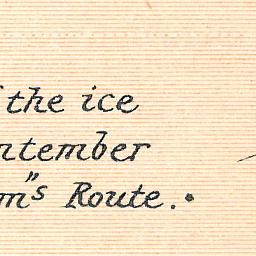 the ice
ntember
m"s Route.